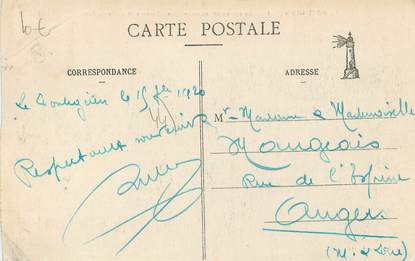 6€
CARTE POSTALE
CORRESPONDANCE
ADRESSE
Le Pouliguen le 15 7bre 1920
Respectueux souvenirs
Mr- Madame & Mademoiselle
Mangeais
Rue de l'Espine
Angers
(M. & Loire)